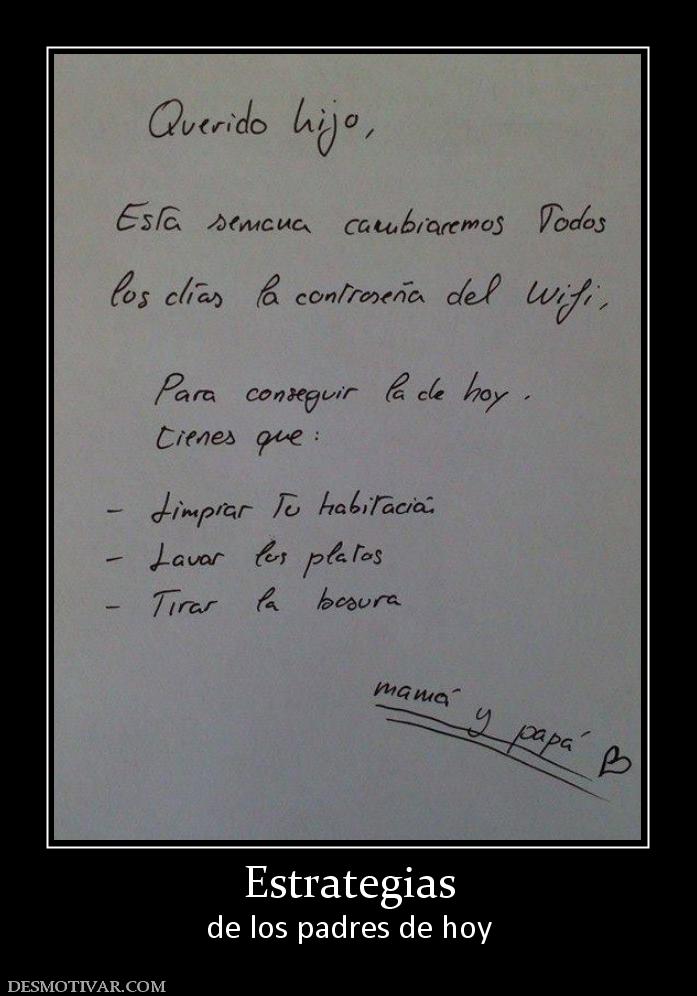 Querido hijo,
Esta semana cambiaremos Todos
los días la contraseña del Wifi,
Para conseguir la de hoy.
tienes que:
- Limpiar Tu habitación
- Lavar los platos
- Tirar la basura
mamá y papá
Estrategias
de los padres de hoy
DESMOTIVAR.COM